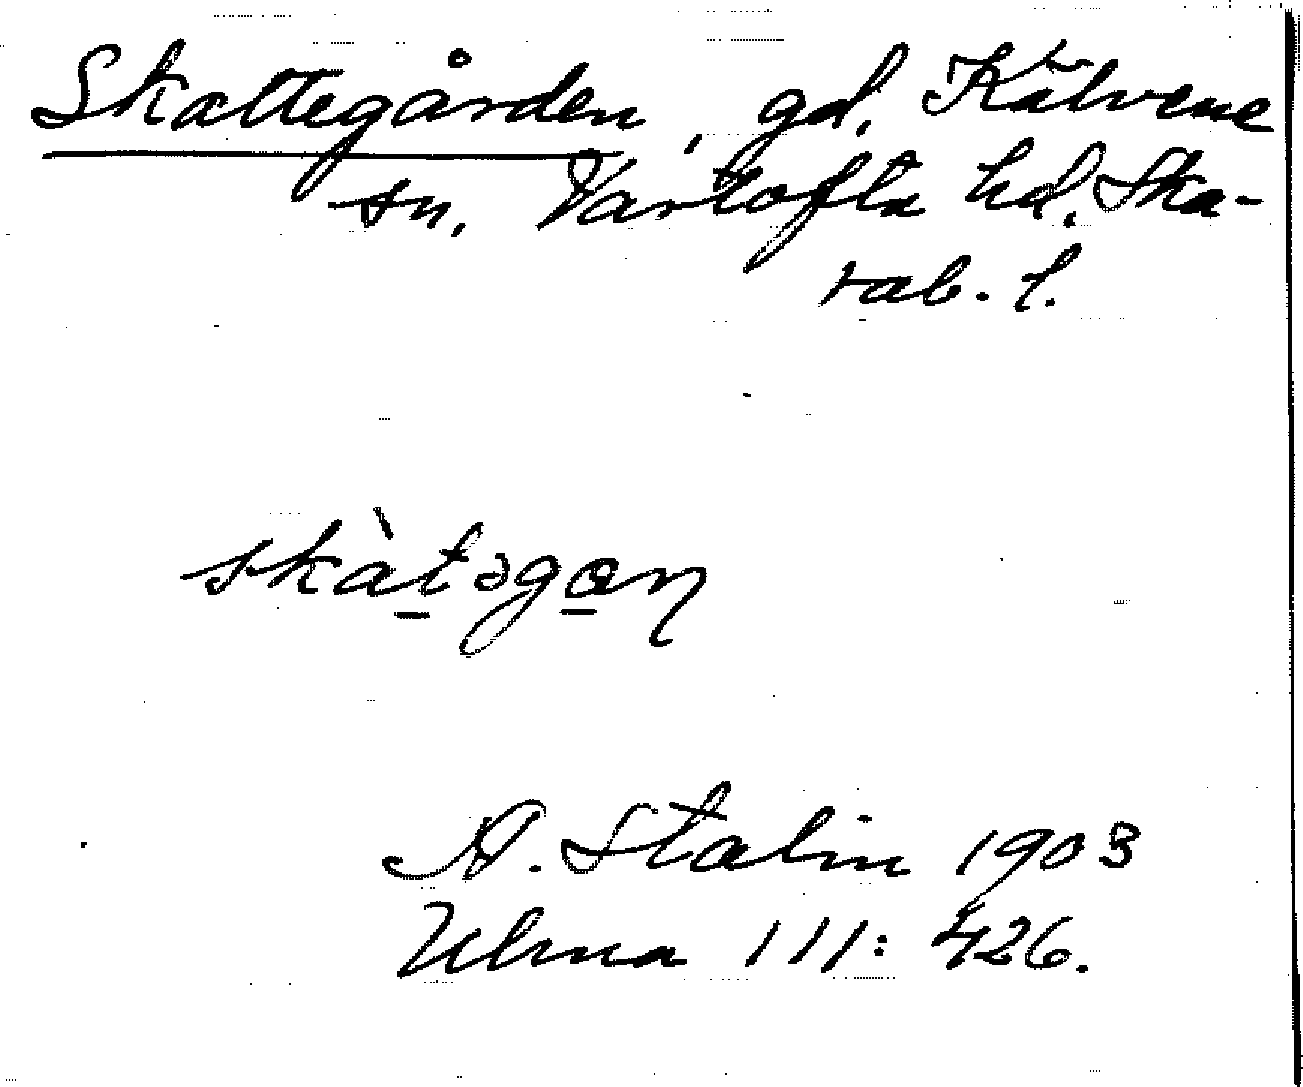 Skattegården, gd. Kälvene
sn. Vartofta hd. Ska-
rab. l.
skàt̲əgo̲ŋ
A. Stalin 1903
Ulma 111: 426.